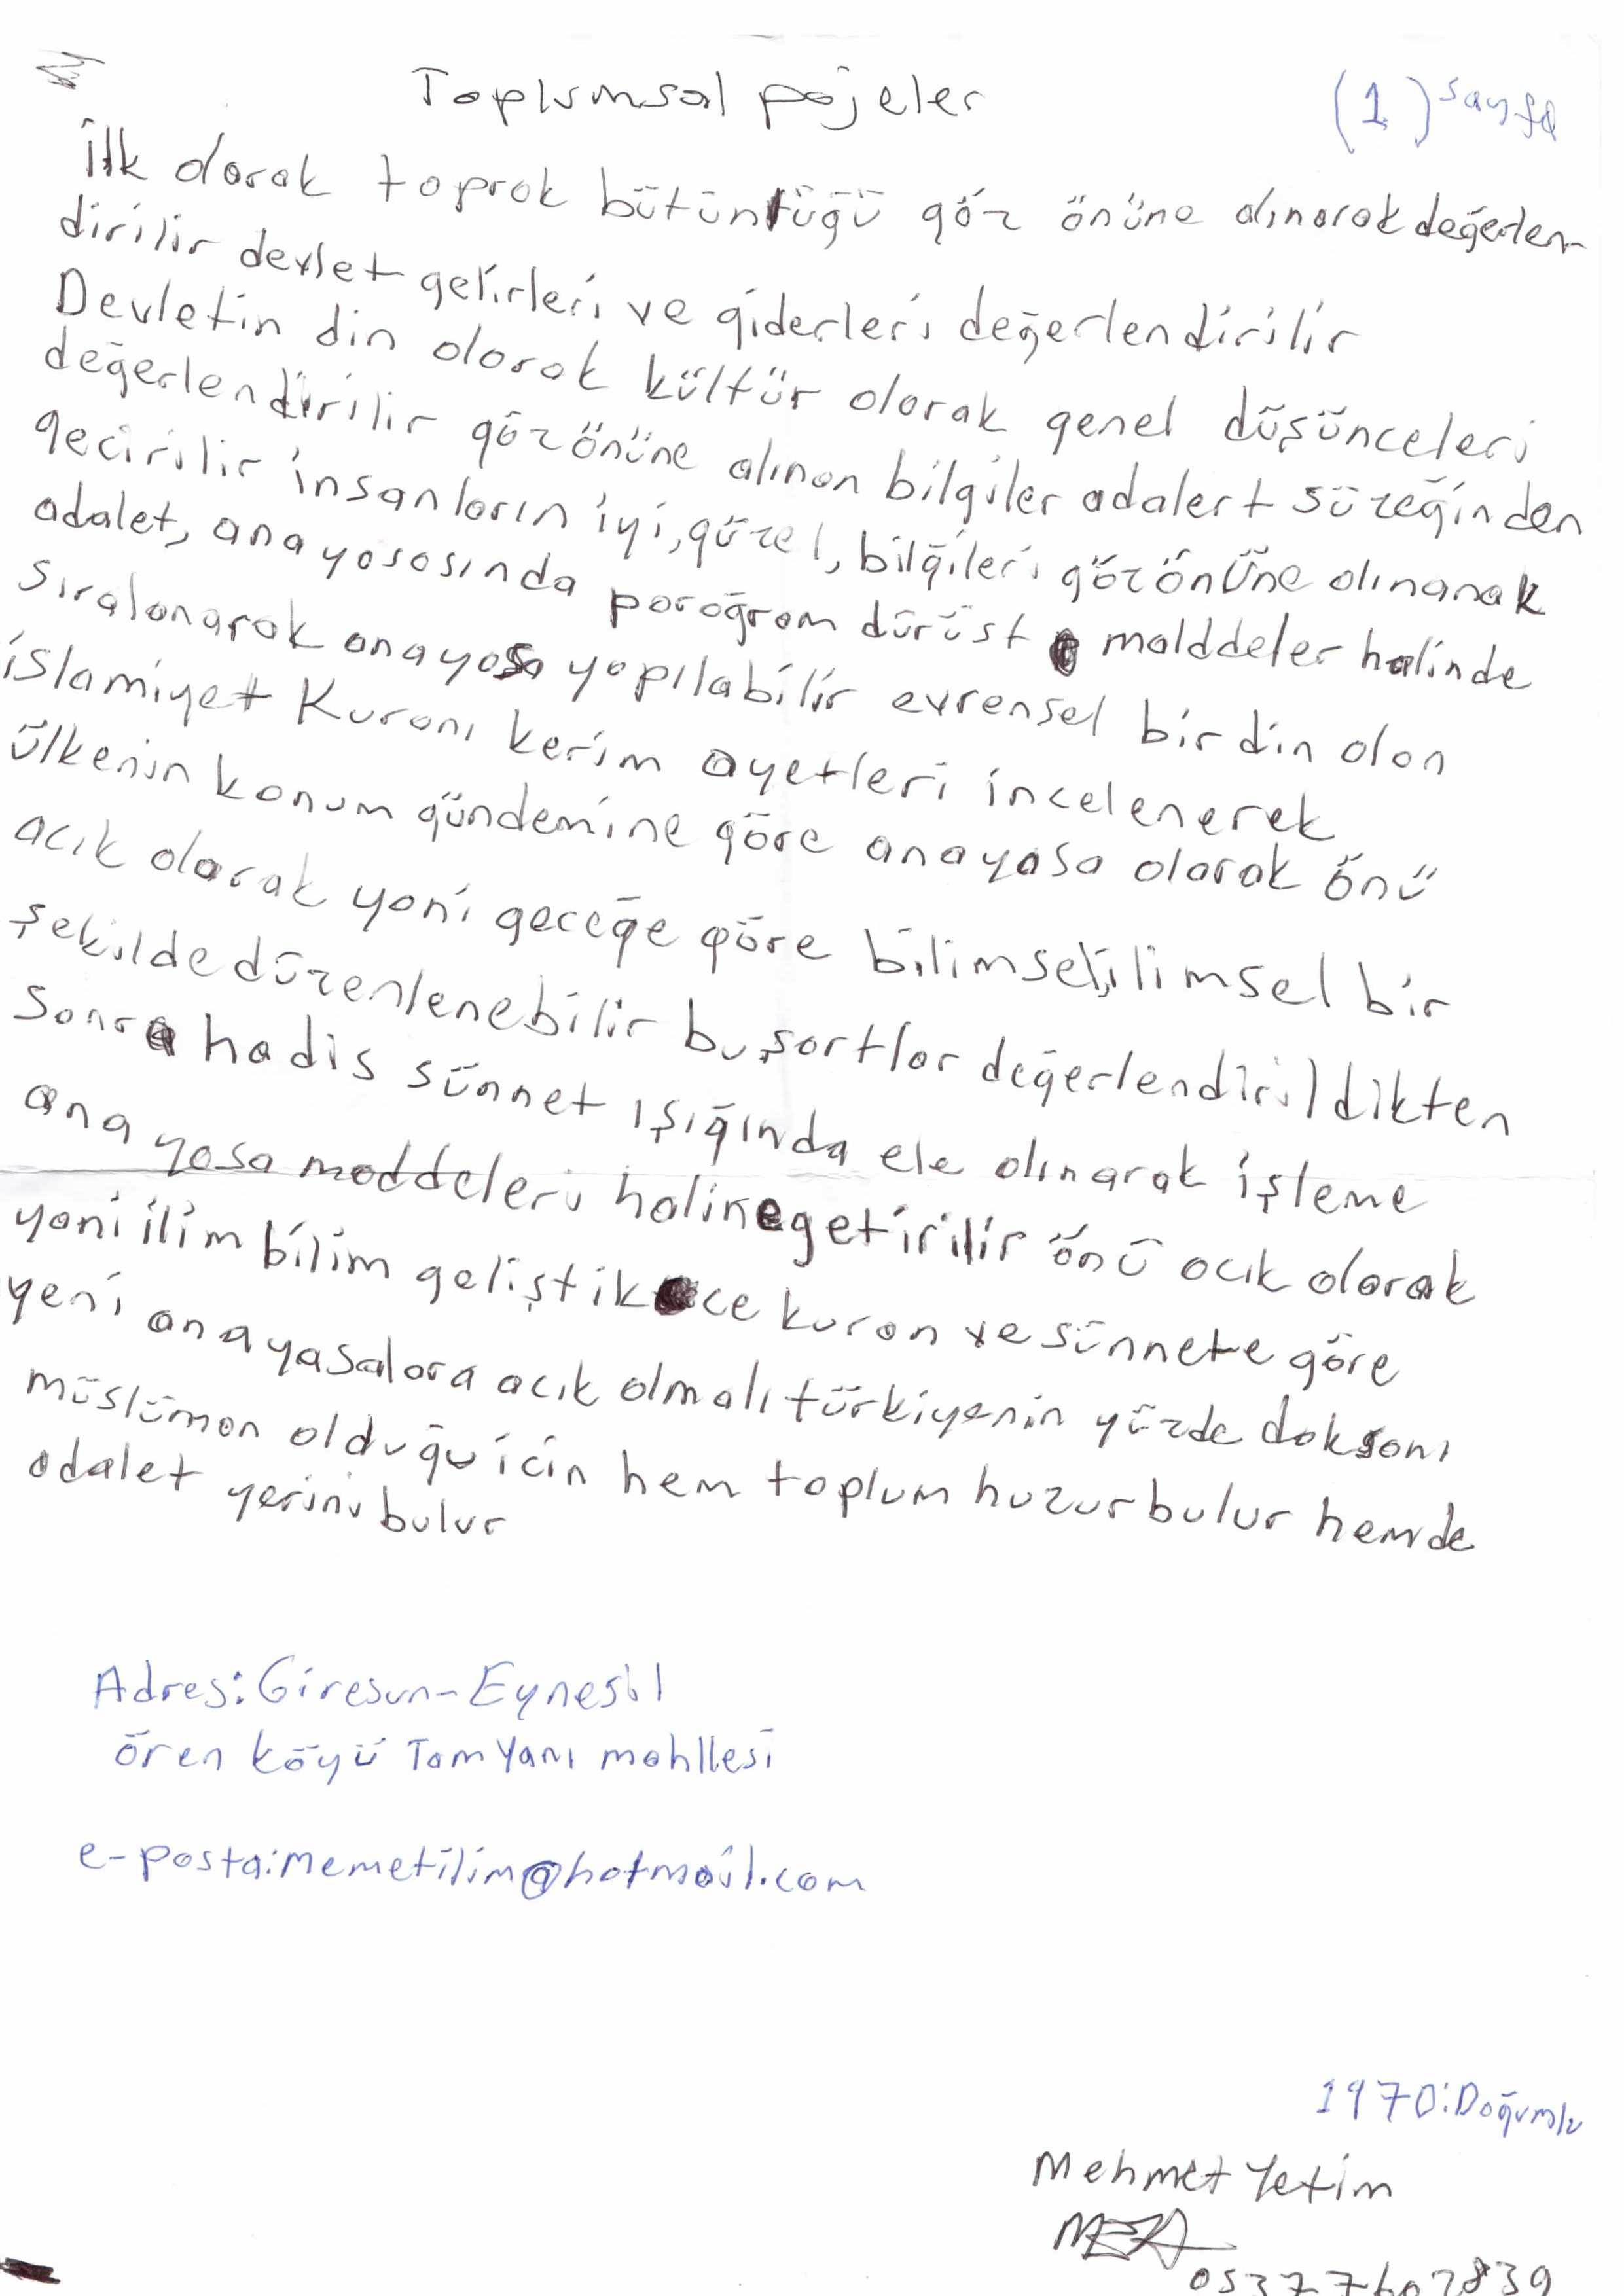 Toplumsal pojeler
(1) sayfa
ilk olarak toprak bütünlüğü göz önüne alınarak değerlen-
dirilir devlet gelirleri ve giderleri değerlendirilir
Devletin din olarak kültür olarak genel düşünceleri
değerlendirilir gözönüne alınan bilgiler adalert süzeğinden
gecirilir insanların iyi, güzel, bilğileri gözönüne alınanak
adalet, anayasasında poroğram dürüst malddeler halinde
sıralanarak anayasa yapılabilir evrensel bir din olan
islamiyet Kuranı kerim ayetleri incelenerek
ülkenin konum gündemine göre anayasa olarak önü
acık olarak yani geceğe göre bilimsel, ilimsel bir
şekilde düzenlenebilir bu şartlar değerlendirildikten
sonra hadis sünnet ışığında ele alınarak işleme
anayasa maddeleri haline getirilir önü acık olarak
yani ilim bilim geliştikce kuran ve sünnete göre
yeni anayasalara acık olmalı türkiyenin yüzde doksanı
müslüman olduğu icin hem toplum huzur bulur hemde
adalet yerini bulur
Adres: Giresun-Eynesil
ören köyü Tam Yanı mahllesi
e-posta: memetilim@hotmail.com
1970: Doğumlu
Mehmet Yetim